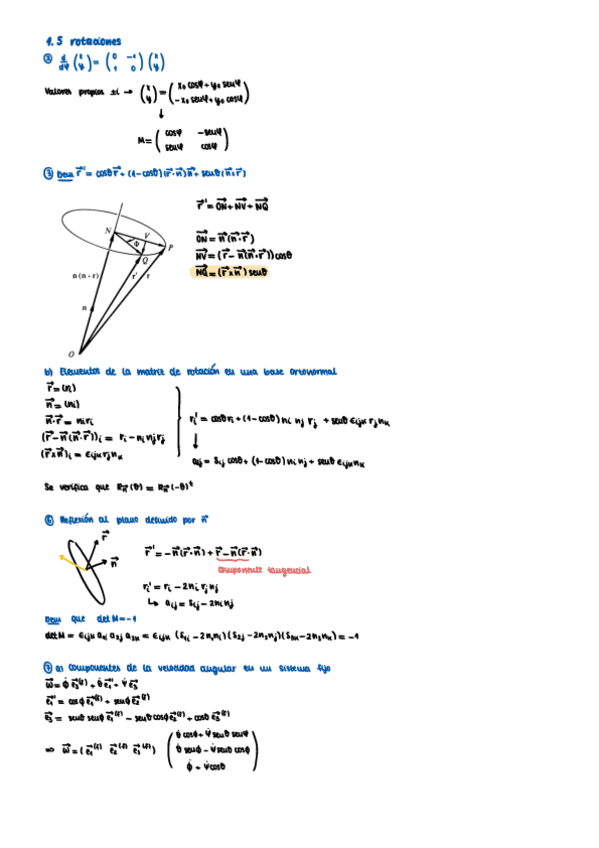 1.5 rotaciones
② d/dφ (x y) = (0 -1 1 0) (x y)
Valores propios ±i → (x y) = (x₀ cosφ + y₀ senφ -x₀ senφ + y₀ cosφ)
↓
M = (cosφ -senφ senφ cosφ)
③ Dem r⃗' = cosθ r⃗ + (1-cosθ)(r⃗·n⃗)n⃗ + senθ(n⃗×r⃗)
r⃗' = ON + NV + NQ
N V Φ P Q
ON = n⃗(n⃗·r⃗)
NV = (r⃗ - n⃗(n⃗·r⃗))cosθ
n(n·r) r' r
NQ = (r⃗×n⃗) senθ
n
O
b) Elementos de la matriz de rotación en una base ortonormal
r⃗ = (ri)
n⃗ = (ni)
n⃗·r⃗ = niri
ri' = cosθ ri + (1-cosθ) ni nj rj + senθ εijk rj nk
(r⃗ - n⃗(n⃗·r⃗))i = ri - ni nj rj
↓
(r⃗×n⃗)i = εijk rj nk
aij = δij cosθ + (1-cosθ) ni nj + senθ εijk nk
Se verifica que Rn⃗(θ) = Rn⃗(-θ)ᵗ
⑥ Reflexión al plano definido por n⃗
r⃗
n⃗
r⃗' = -n⃗(r⃗·n⃗) + r⃗ - n⃗(r⃗·n⃗)
componente tangencial
ri' = ri - 2ni rj nj
↳ aij = δij - 2ninj
Dem que det M = -1
det M = εijk a1i a2j a3k = εijk (δ1i - 2n1ni)(δ2j - 2n2nj)(δ3k - 2n3nk) = -1
⑦ a) componentes de la velocidad angular en un sistema fijo
ω⃗ = φ̇ e⃗3⁽ᶠ⁾ + θ̇ e⃗1' + ψ̇ e⃗3
e⃗1' = cosφ e⃗1⁽ᶠ⁾ + senφ e⃗2⁽ᶠ⁾
e⃗3 = senθ senφ e⃗1⁽ᶠ⁾ - senθ cosφ e⃗2⁽ᶠ⁾ + cosθ e⃗3⁽ᶠ⁾
⇒ ω⃗ = (e⃗1⁽ᶠ⁾ e⃗2⁽ᶠ⁾ e⃗3⁽ᶠ⁾) (θ̇ cosφ + ψ̇ senθ senφ θ̇ senφ - ψ̇ senθ cosφ φ̇ + ψ̇ cosθ)